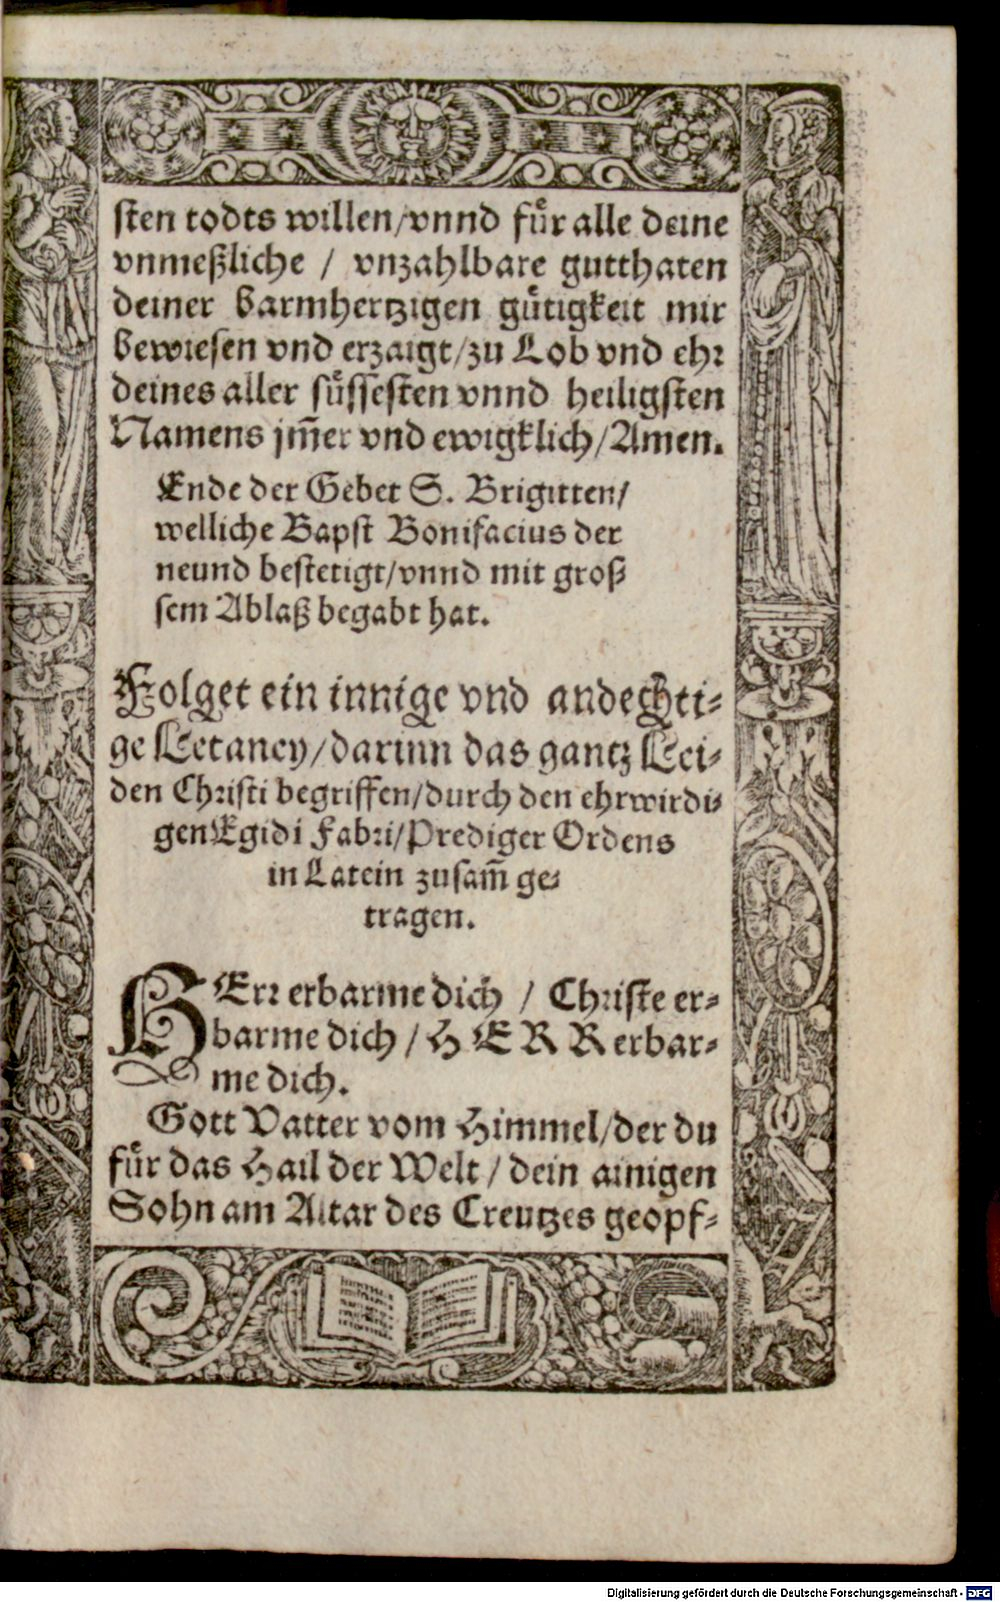 sten todts willen/vnnd fuͤr alle deine
vnmeßliche / vnzahlbare gutthaten
deiner barmhertzigen guͤtigkeit mir
bewiesen vnd erzaigt/zu Lob vnd ehr
deines aller suͤssesten vnnd heiligsten
Namens jm̃er vnd ewigklich/Amen.
Ende der Gebet S. Brigitten/
welliche Bapst Bonifacius der
neund bestetigt/vnnd mit groß
sem Ablaß begabt hat.
Folget ein innige vnd andechti-
ge Letaney/darinn das gantz Lei-
den Christi begriffen/durch den ehrwirdi-
gen Egidi Fabri/Prediger Ordens
in Latein zusam̃ ge-
tragen.
HErr erbarme dich / Christe er-
barme dich / HERR erbar-
me dich.
Gott Vatter vom Himmel/der du
fuͤr das Hail der Welt / dein ainigen
Sohn am Altar des Creutzes geopf-
Digitalisierung gefördert durch die Deutsche Forschungsgemeinschaft - DFG